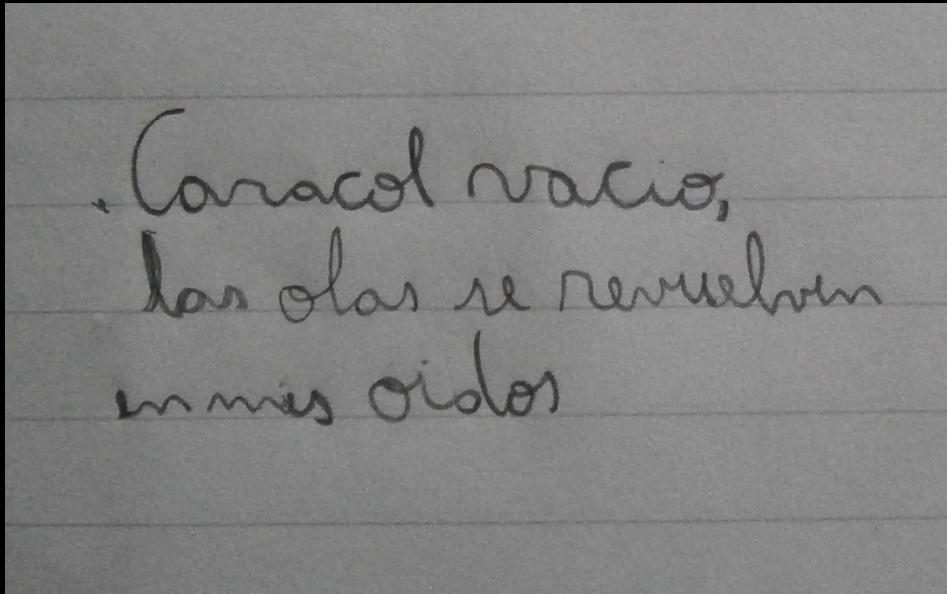 .Caracol vacio,
las olas se revuelven
en mis oidos